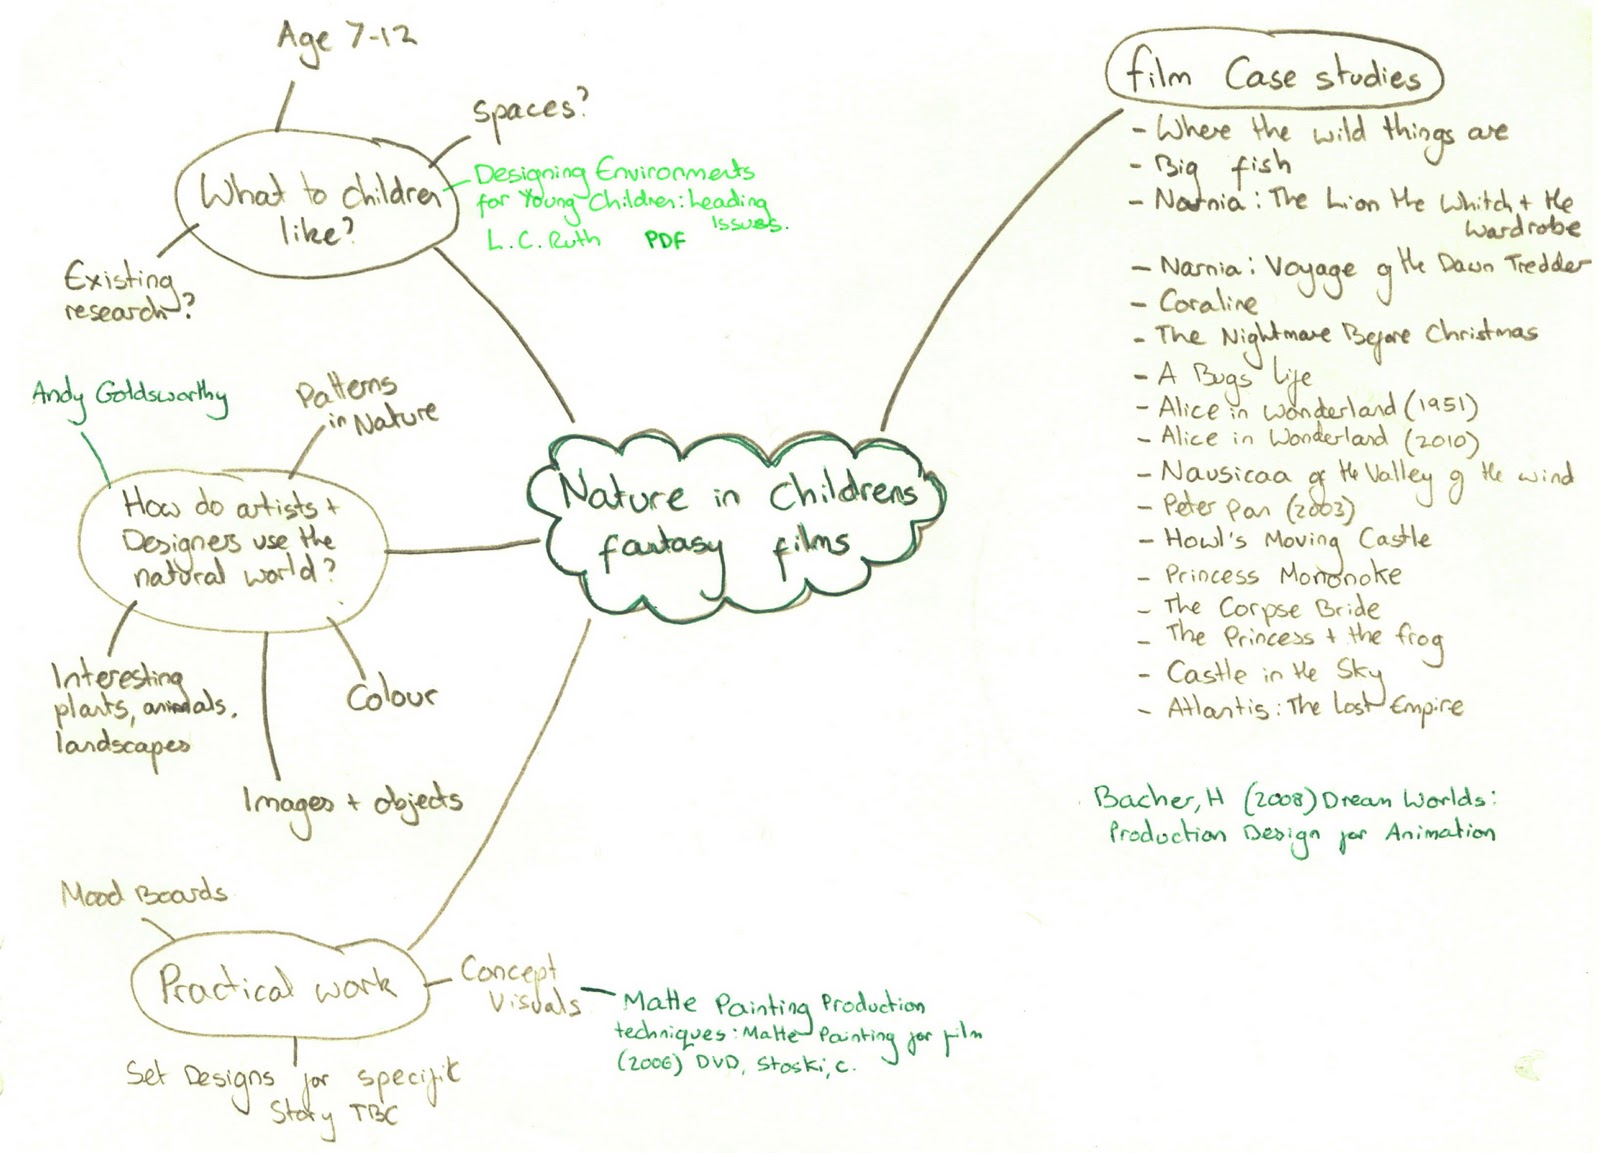 Age 7-12
Spaces?
What to children
like?
Designing Environments
for Young Children: Leading
Issues.
L.C. Ruth PDF
Existing
research?
Andy Goldsworthy
Patterns
in Nature
How do artists +
Designers use the
natural world?
Interesting
plants, animals,
landscapes
Colour
Images + objects
Nature in Childrens
fantasy films
Mood Boards
Practical work
Concept
Visuals
Matte Painting Production
techniques: Matte Painting for film
(2006) DVD, Stoski, C.
Set Designs for specific
Story TBC
film Case studies
- Where the wild things are
- Big fish
- Narnia: The Lion the Whitch + the
wardrobe
- Narnia: Voyage of the Dawn Tredder
- Coraline
- The Nightmare Before Christmas
- A Bugs life
- Alice in wonderland (1951)
- Alice in Wonderland (2010)
- Nausicaa of the Valley of the wind
- Peter pan (2003)
- Howl's Moving Castle
- Princess Mononoke
- The Corpse Bride
- The Princess + the frog
- Castle in the Sky
- Atlantis: The Lost Empire
Bacher, H (2008) Dream Worlds:
Production Design for Animation